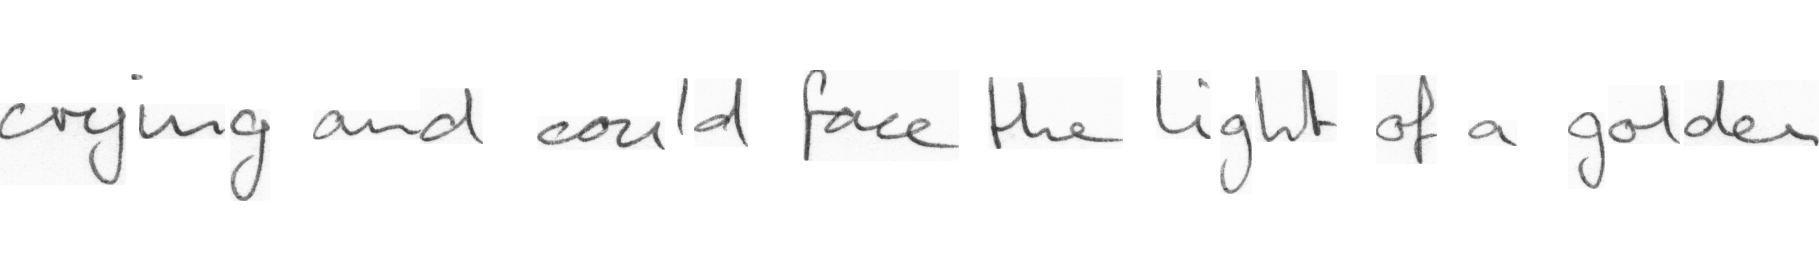 crying and could face the light of a golden